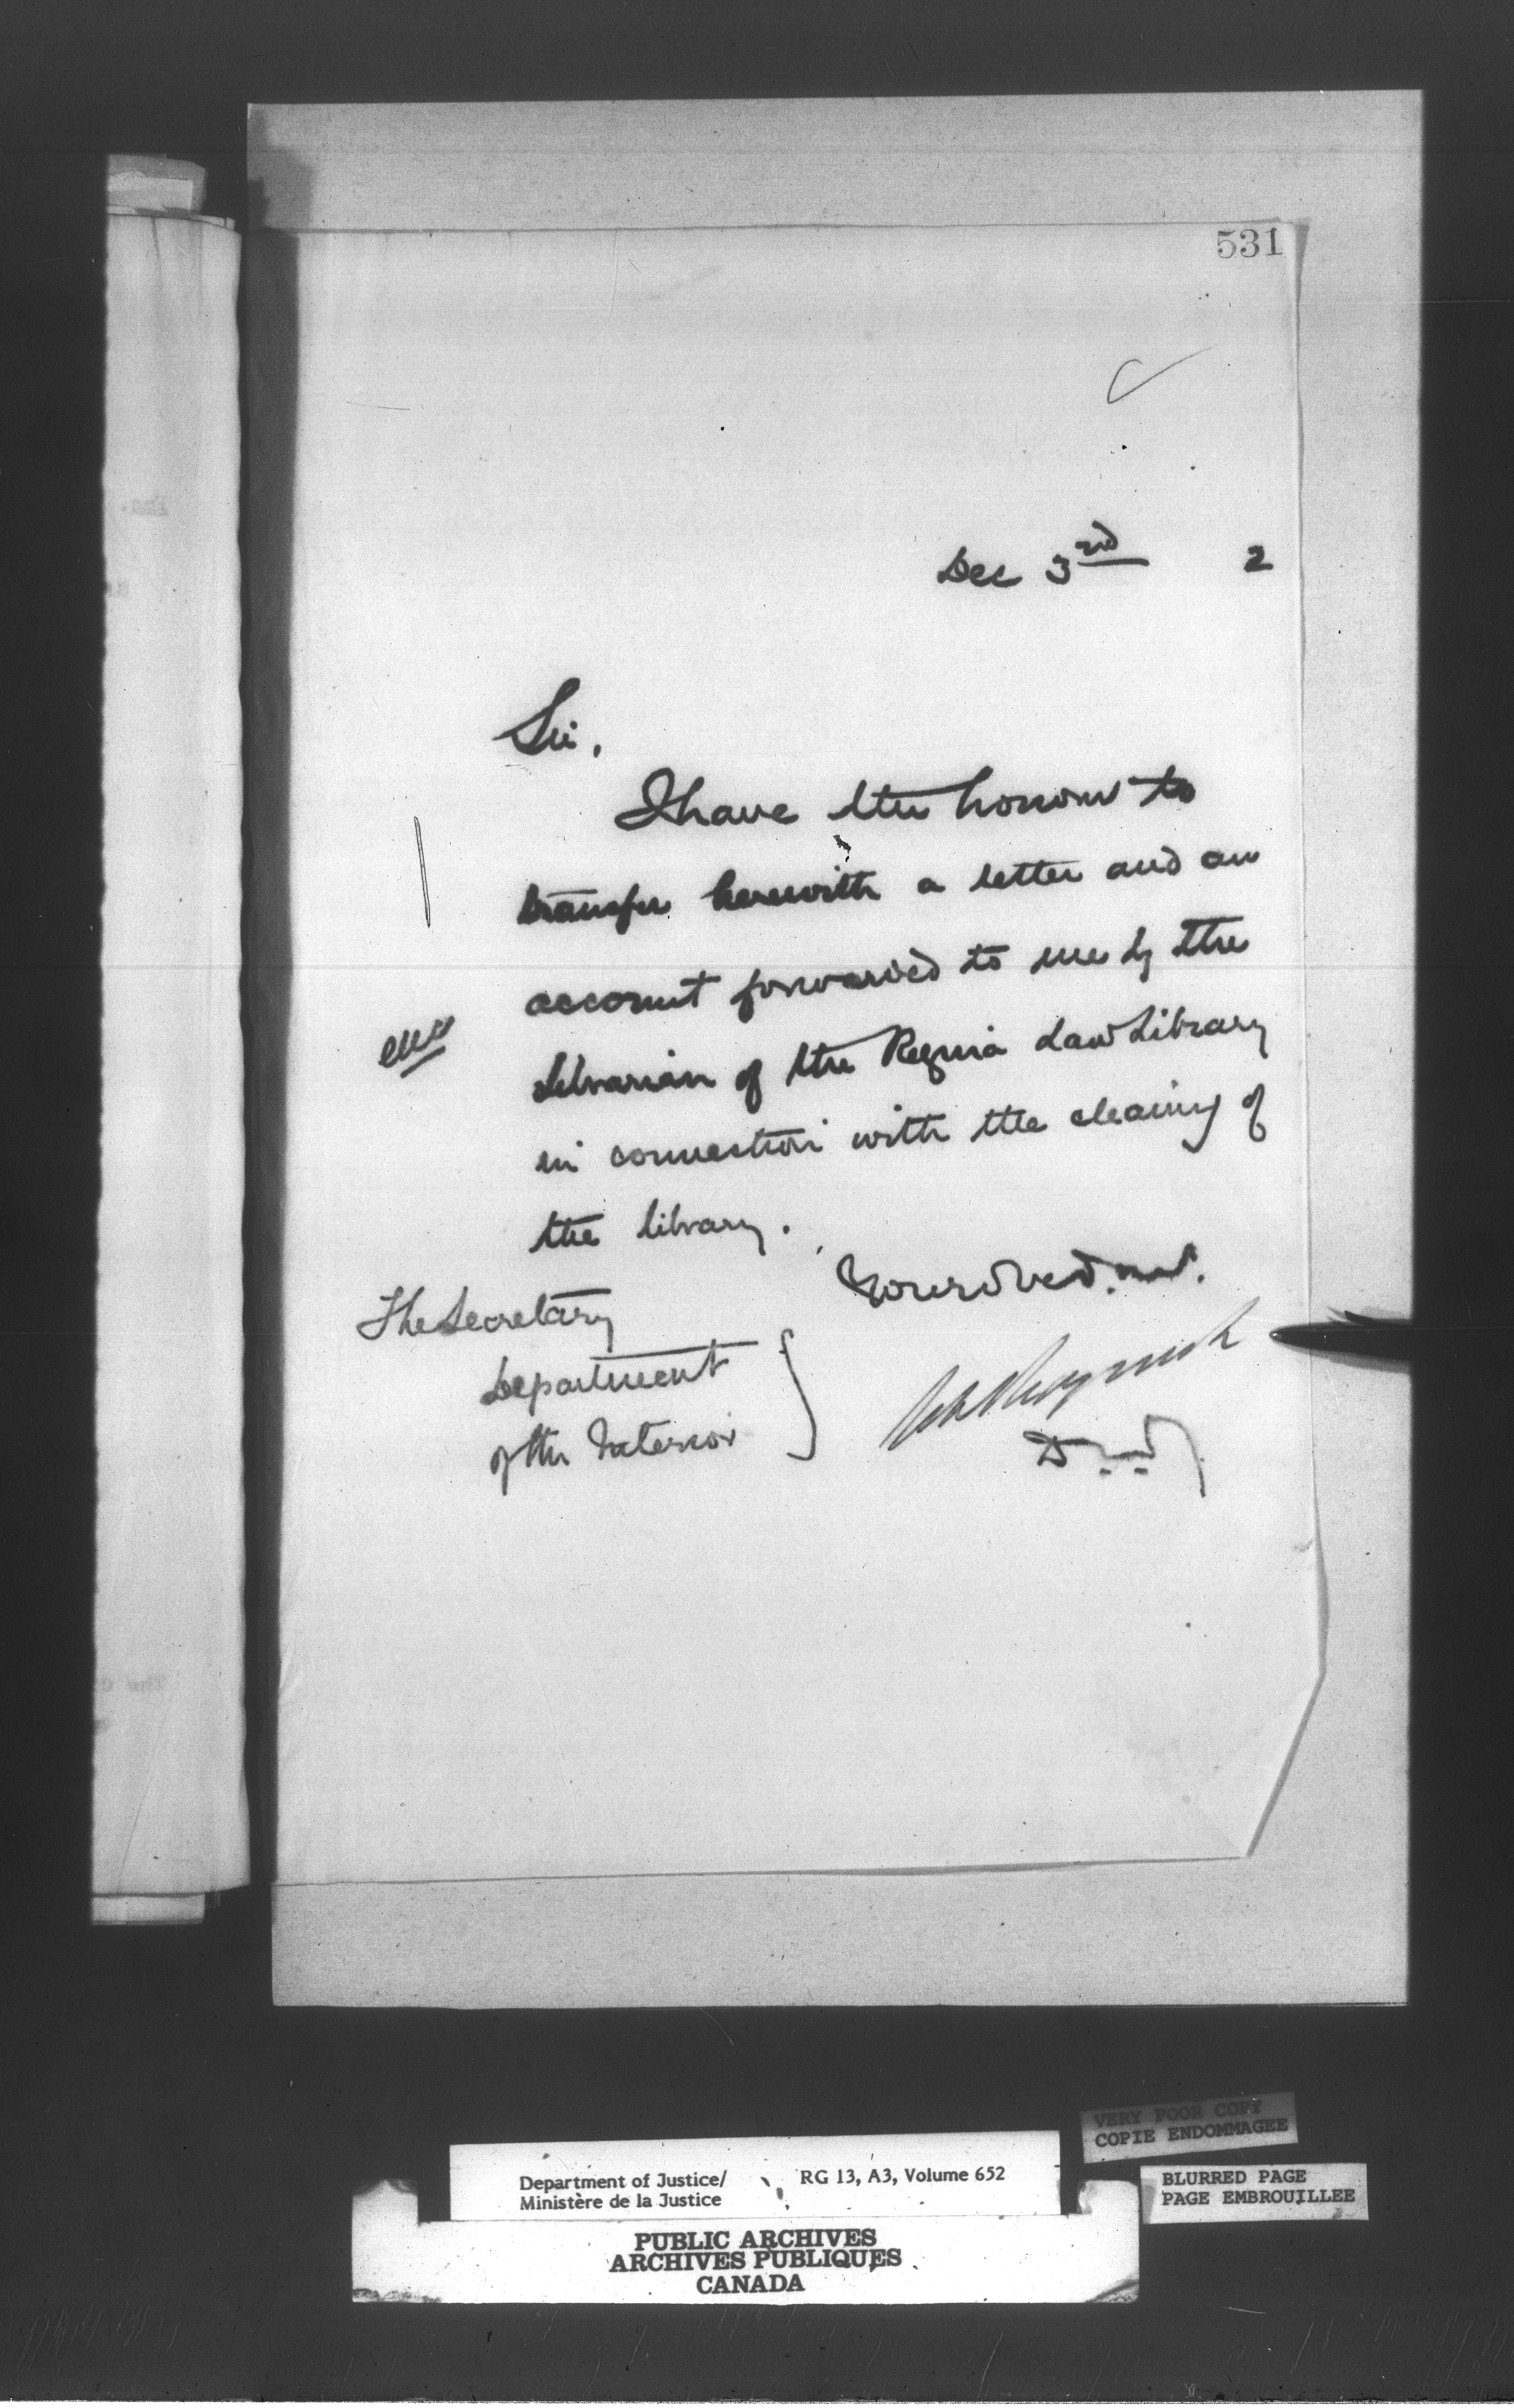 531
Dec 3rd 2
Sir,
I have the honour to
transfer herewith a letter and an
account forwarded to me by the
Librarian of the Regina Law Library
in connection with the cleaning of
the library.
Your obed. svt.
The Secretary
Department
of the Interior
D.M.J.
VERY POOR COPY
COPIE ENDOMMAGEE
Department of Justice/
Ministère de la Justice
RG 13, A3, Volume 652
BLURRED PAGE
PAGE EMBROUILLEE
PUBLIC ARCHIVES
ARCHIVES PUBLIQUES
CANADA